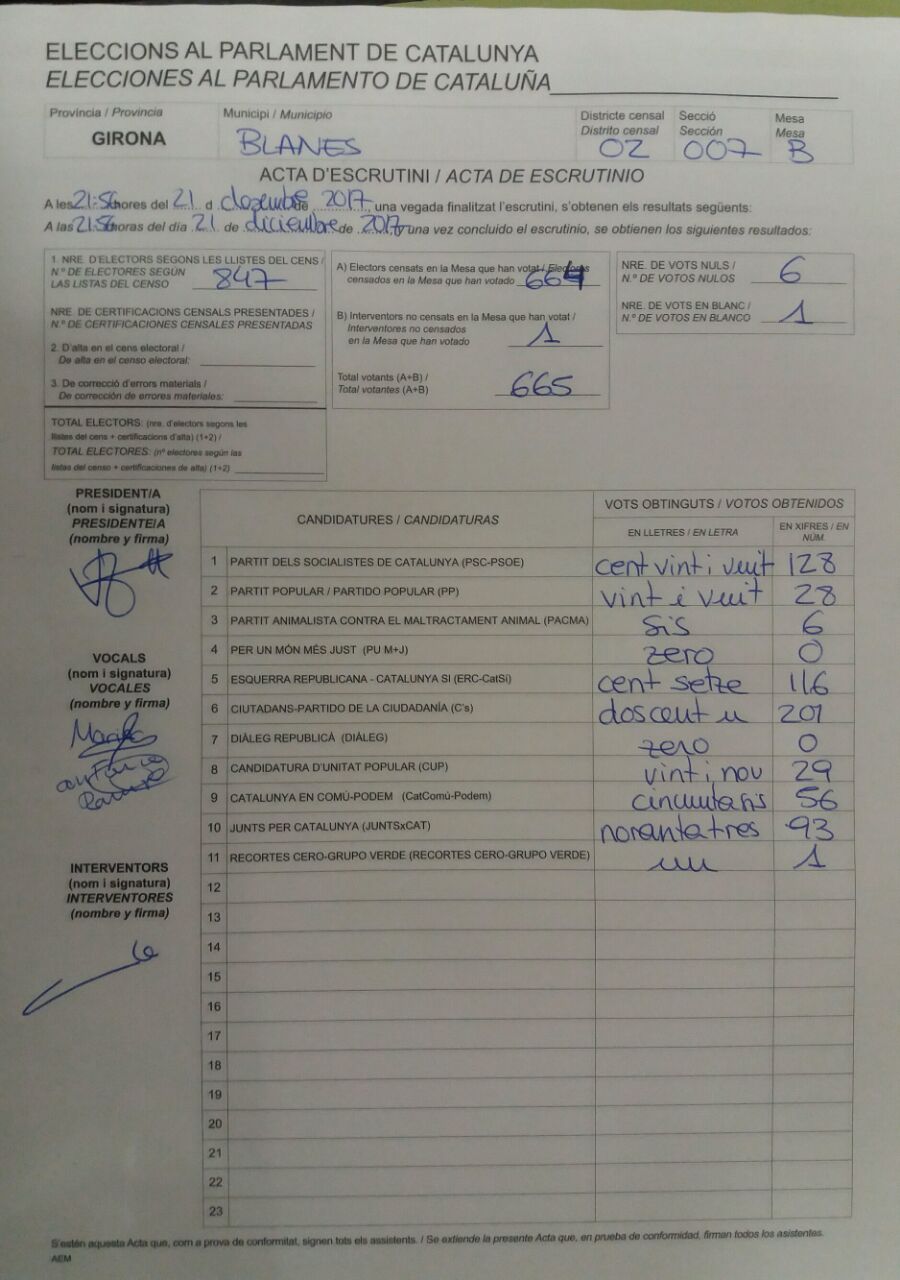 ELECCIONS AL PARLAMENT DE CATALUNYA
ELECCIONES AL PARLAMENTO DE CATALUÑA
Provincia / Provincia
GIRONA
Municipi / Municipio
BLANES
Districte censal
Distrito censal
02
Secció
Sección
007
Mesa
Mesa
B
ACTA D'ESCRUTINI / ACTA DE ESCRUTINIO
A les 21:56 hores del 21 d dezembre de 2017, una vegada finalitzat l'escrutini, s'obtenen els resultats següents:
A las 21:56 horas del día 21 de diciembre de 2017 una vez concluido el escrutinio, se obtienen los siguientes resultados:
1. NRE. D'ELECTORS SEGONS LES LLISTES DEL CENS /
N.º DE ELECTORES SEGÚN
LAS LISTAS DEL CENSO 847
NRE. DE CERTIFICACIONS CENSALS PRESENTADES /
N.º DE CERTIFICACIONES CENSALES PRESENTADAS
2. D'alta en el cens electoral /
De alta en el censo electoral:
3. De correcció d'errors materials /
De corrección de errores materiales:
TOTAL ELECTORS: (nre. d'electors segons les
llistes del cens + certificacions d'alta) (1+2) /
TOTAL ELECTORES: (nº electores según las
listas del censo + certificaciones de alta) (1+2)
A) Electors censats en la Mesa que han votat / Electores
censados en la Mesa que han votado 664
B) Interventors no censats en la Mesa que han votat /
Interventores no censados
en la Mesa que han votado 1
Total votants (A+B) /
Total votantes (A+B) 665
NRE. DE VOTS NULS /
N.º DE VOTOS NULOS 6
NRE. DE VOTS EN BLANC /
N.º DE VOTOS EN BLANCO 1
PRESIDENT/A
(nom i signatura)
PRESIDENTE/A
(nombre y firma)
VOCALS
(nom i signatura)
VOCALES
(nombre y firma)
INTERVENTORS
(nom i signatura)
INTERVENTORES
(nombre y firma)
CANDIDATURES / CANDIDATURAS
VOTS OBTINGUTS / VOTOS OBTENIDOS
EN LLETRES / EN LETRA
EN XIFRES / EN
NÚM.
1 PARTIT DELS SOCIALISTES DE CATALUNYA (PSC-PSOE) cent vint i vuit 128
2 PARTIT POPULAR / PARTIDO POPULAR (PP) vint i vuit 28
3 PARTIT ANIMALISTA CONTRA EL MALTRACTAMENT ANIMAL (PACMA) sis 6
4 PER UN MÓN MÉS JUST (PU M+J) zero 0
5 ESQUERRA REPUBLICANA - CATALUNYA SI (ERC-CatSi) cent setze 116
6 CIUTADANS-PARTIDO DE LA CIUDADANÍA (C's) dos cent u 201
7 DIÀLEG REPUBLICÀ (DIÀLEG) zero 0
8 CANDIDATURA D'UNITAT POPULAR (CUP) vint i nou 29
9 CATALUNYA EN COMÚ-PODEM (CatComú-Podem) 56
10 JUNTS PER CATALUNYA (JUNTSxCAT) norantatres 93
11 RECORTES CERO-GRUPO VERDE (RECORTES CERO-GRUPO VERDE) un 1
12
13
14
15
16
17
18
19
20
21
22
23
S'estén aquesta Acta que, com a prova de conformitat, signen tots els assistents. / Se extiende la presente Acta que, en prueba de conformidad, firman todos los asistentes.
AEM